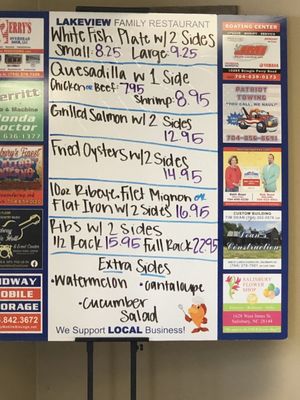 LAKEVIEW FAMILY RESTAURANT
White Fish Plate w/ 2 Sides
Small 8.25 Large 9.25
Quesadilla w 1 Side
Chicken or Beef 7.95
Shrimp 8.95
Grilled Salmon w/ 2 Sides
12.95
Fried Oysters w/ 2 Sides
14.95
10oz Ribeye, Filet Mignon or
Flat Iron w/ 2 Sides 16.95
Ribs w/ 2 Sides
1/2 Rack 15.95 Full Rack 22.95
Extra Sides
•Watermelon •Cantaloupe
•Cucumber
Salad
We Support LOCAL Business!
MOBILE
STORAGE
.842.3672
BOATING CENTER
PATRIOT
TOWING
YOU CALL, WE HAUL
704-856-8591
CUSTOM BUILDING
Construction
SALISBURY
FLOWER
SHOP
1628 West Innes St.
Salisbury, NC 28144